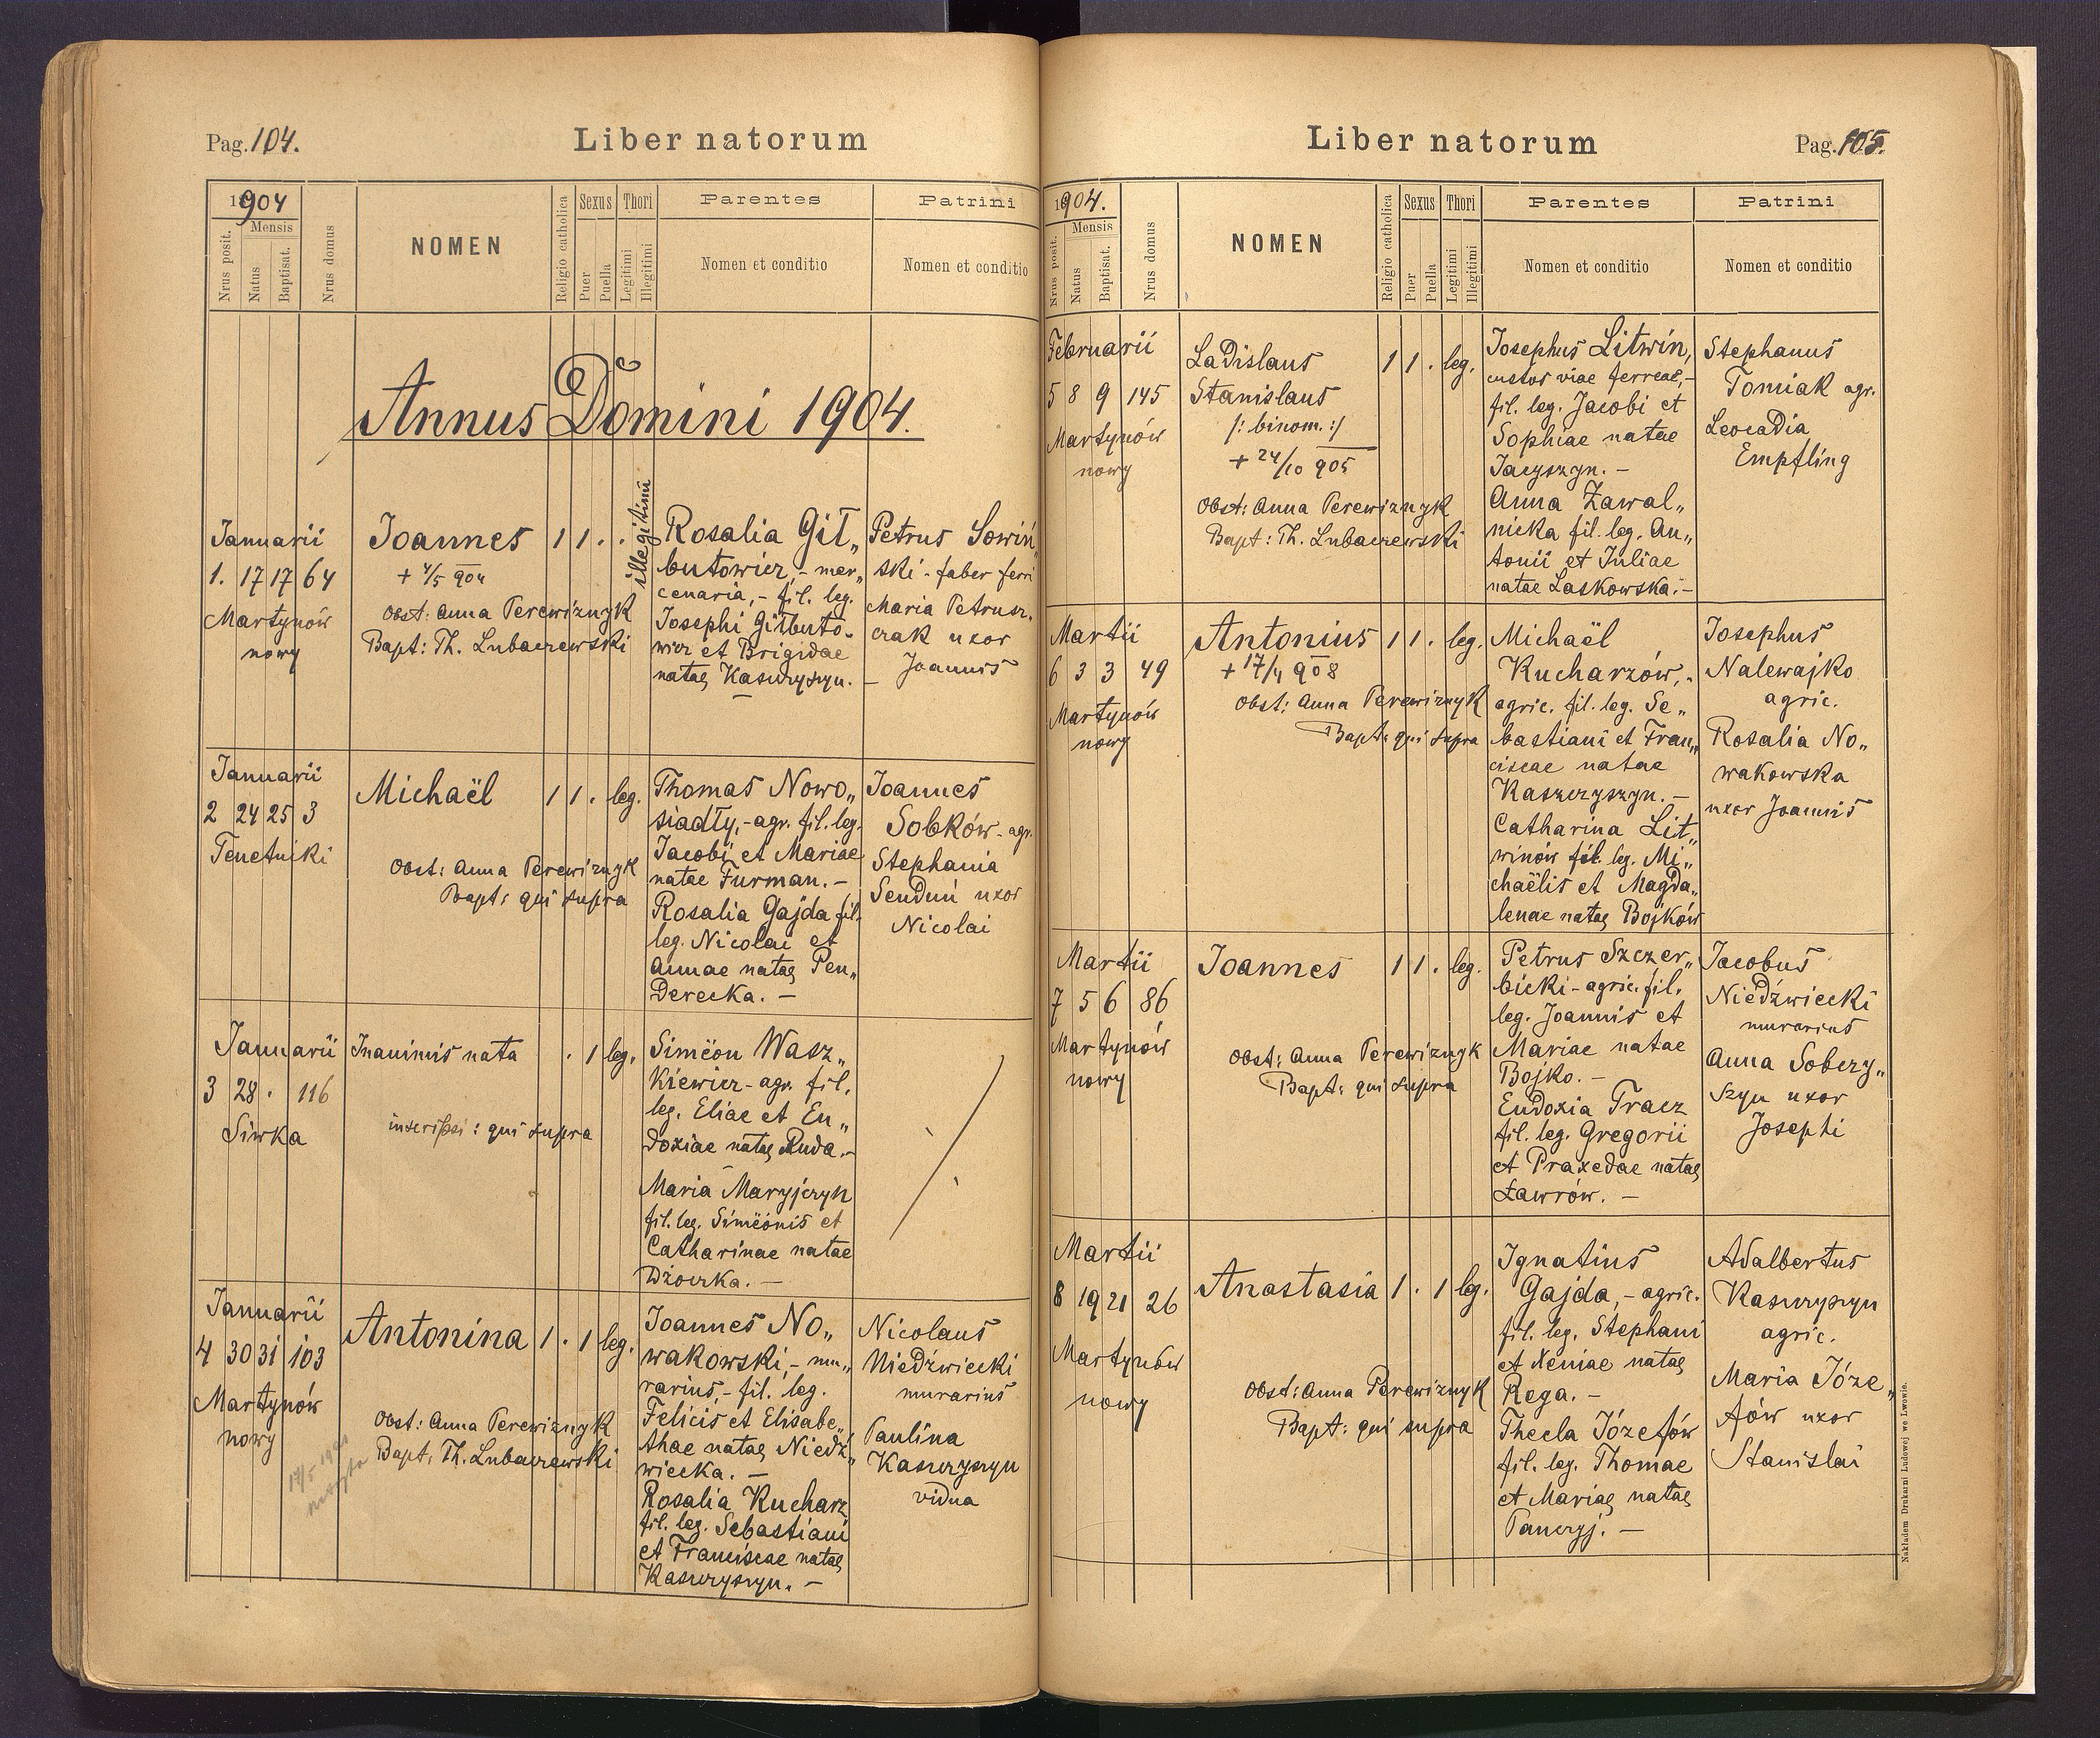 Pag. 104.
Liber natorum
1904
Mensis
Nrus posit.
Natus
Baptisat.
Nrus domus
NOMEN
Religio catholica
Sexus
Puer
Puella
Thori
Legitimi
Illegitimi
Parentes
Nomen et conditio
Patrini
Nomen et conditio
Annus Domini 1904.
Januarii
1. 17 17 64
Martynów
nowy
Joannes
+ 4/5 904
Obst: Anna Perewiznyk
Bapt: Th. Lubaczewski
1 1 . .
illegitimi
Rosalia Git„
butowicz,- mer„
cenaria,- fil. leg.
Josephi Gitbuto-
wicz et Brigidae
natae Kasurysyn. —
Petrus Sowiń„
ski - faber ferri
Maria Petrusz.
czak uxor
Joannis
Januarii
2 24 25 3
Tenetniki
Michaël
Obst: Anna Perewiznyk
Bapt: qui supra
1 1 . leg.
Thomas Nowo„
siadły,- agr. fil. leg.
Jacobi et Mariae
natae Furman. —
Rosalia Gajda fil.
leg. Nicolai et
Annae natae Pen„
derecka. —
Joannes
Sobków - agr.
Stephania
Senduń uxor
Nicolai
Januarii
3 28 . 116
Siwka
Inanimis nata
inscripsi: qui supra
. 1 leg.
Simëon Wasz„
kiewicz - agr. fil.
leg. Eliae et Eu„
doxiae natae Ruda.-
Maria Maryjczyn
fil. leg. Simëonis et
Catharinae natae
Dżoczka. —
Januarii
4 30 31 103
Martynów
nowy
Antonina
Obst: Anna Perewiznyk
Bapt: Th. Lubaczewski
1 . 1 leg.
Joannes No„
wakowski,- mu„
rarius,- fil. leg.
Felicis et Elisabe„
thae natae Niedź„
wiecka. —
Rosalia Kucharz
fil. leg. Sebastiani
et Franciscae natae
Kasurysyn. —
Nicolaus
Niedźwiecki
murarius
Paulina
Kasurysyn
vidua
Liber natorum
Pag. 105.
1904.
Mensis
Nrus posit.
Natus
Baptisat.
Nrus domus
NOMEN
Religio catholica
Sexus
Puer
Puella
Thori
Legitimi
Illegitimi
Parentes
Nomen et conditio
Patrini
Nomen et conditio
Februarii
5 8 9 145
Martynów
nowy
Ladislaus
Stanislaus
/: binom. :/
+ 24/10 905
Obst: Anna Perewiznyk
Bapt: Th. Lubaczewski
1 1 . leg.
Josephus Litwin,
custos viae ferreae,-
fil. leg. Jacobi et
Sophiae natae
Jacyszyn. —
Anna Zawal„
nicka fil. leg. An„
tonii et Juliae
natae Laskowska.-
Stephanus
Tomiak agr.
Leocadia
Empfling
Martii
6 3 3 49
Martynów
nowy
Antonius
+ 17/4 908
Obst: Anna Perewiznyk
Bapt: qui supra
1 1 . leg.
Michaël
Kucharzów,-
agric. fil. leg. Se„
bastiani et Fran„
ciscae natae
Kaszczyszyn. —
Catharina Lit„
winów fil. leg. Mi„
chaëlis et Magda„
lenae natae Bojków
Josephus
Nalewajko
agric.
Rosalia No„
wakowska
uxor Joannis
Martii
7 5 6 86
Martynów
nowy
Joannes
Obst: Anna Perewiznyk
Bapt: qui supra
1 1 . leg.
Petrus Szczer„
bicki - agric. fil.
leg. Joannis et
Mariae natae
Bojko. —
Eudoxia Tracz
fil. leg. Gregorii
et Praxedae natae
Ławrów. —
Jacobus
Niedźwiecki
murarius
Anna Sobczy„
szyn uxor
Josephi
Martii
8 19 21 26
Martynów
nowy
Anastasia
Obst: Anna Perewiznyk
Bapt: qui supra
1 . 1 lg.
Ignatius
Gajda,- agric.
fil. leg. Stephani
et Xeniae natae
Rega. —
Thecla Józefów
fil. leg. Thomae
et Mariae natae
Panczyj. —
Adalbertus
Kasurysyn
agric.
Maria Józe„
fów uxor
Stanislai
Nakładem Drukarni Ludowej we Lwowie.